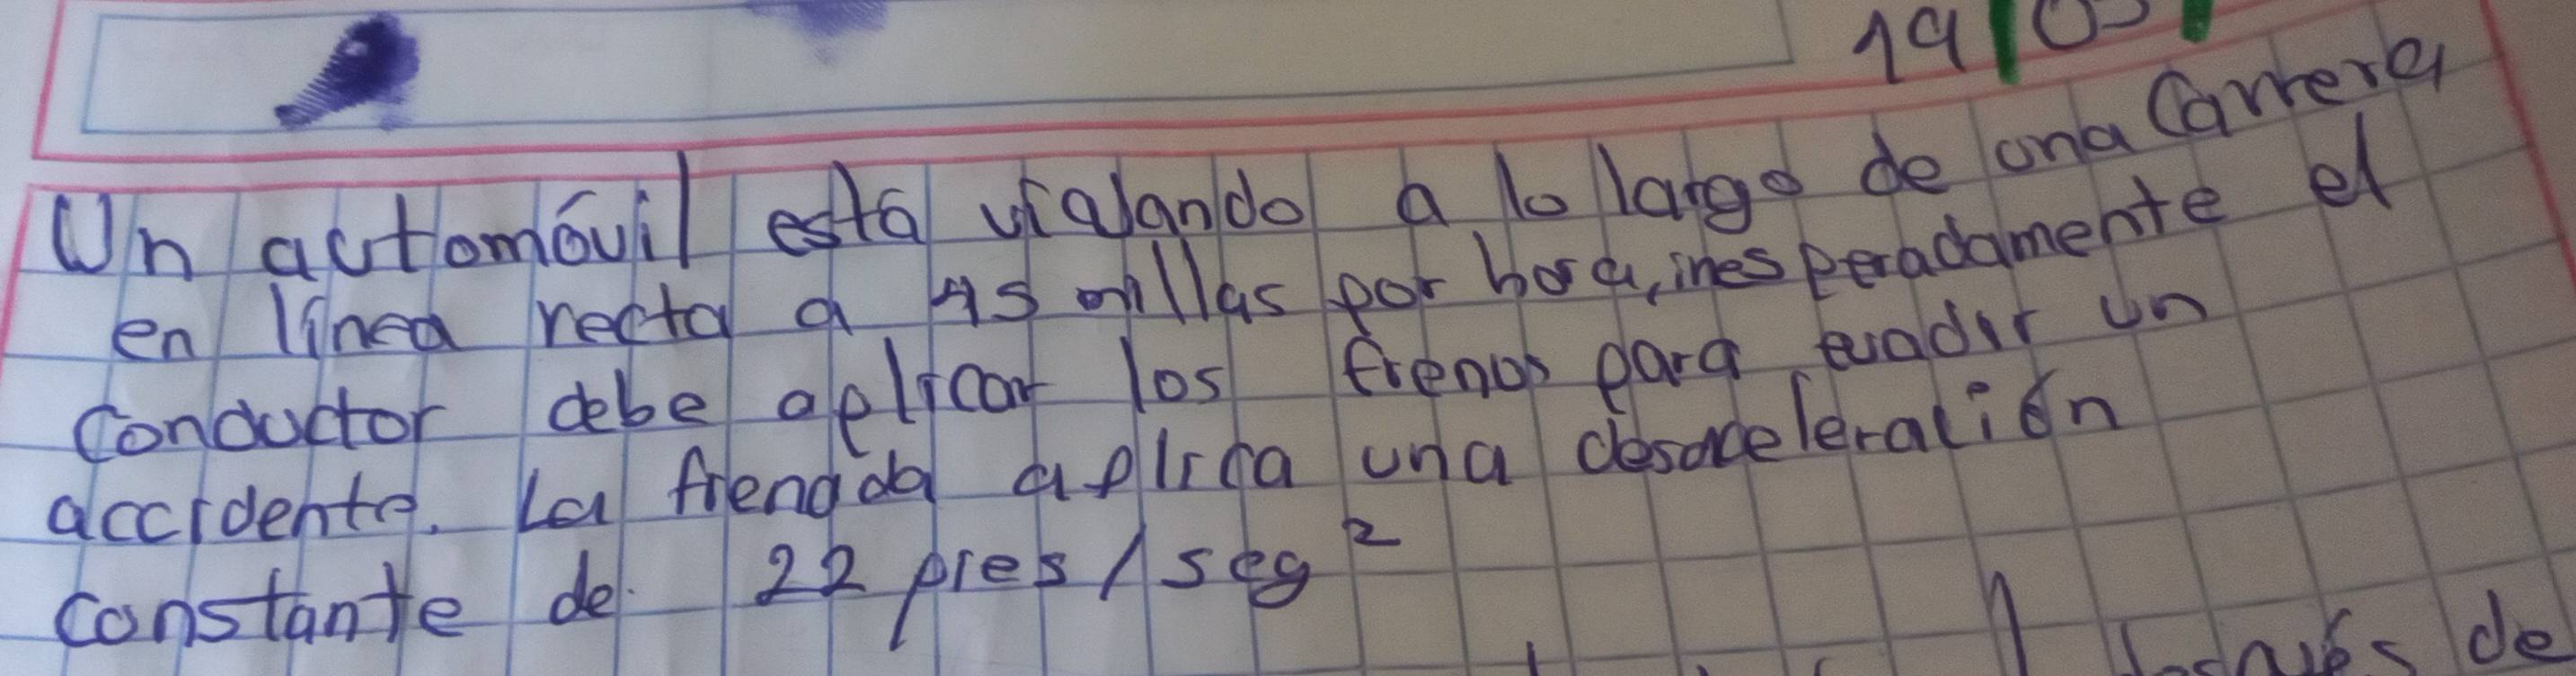 19 03
Un automóvil está viajando a lo largo de una Carrera
en línea recta a 45 millas por hora, inesperadamente el
conductor debe aplicar los frenos para evadir un
accidente. La frenada aplica una desaceleración
constante de 22 pies/seg²
después de